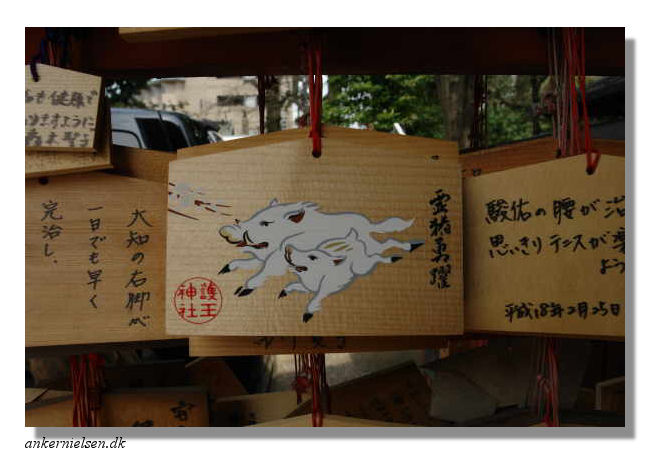 も健康で
ますように
大知の右脚が
一日でも早く
完治し、
霊猪勇躍
護王
神社
駿佑の腰が治
思いきりテニスが楽
よう
平成18年2月25日
ankernielsen.dk